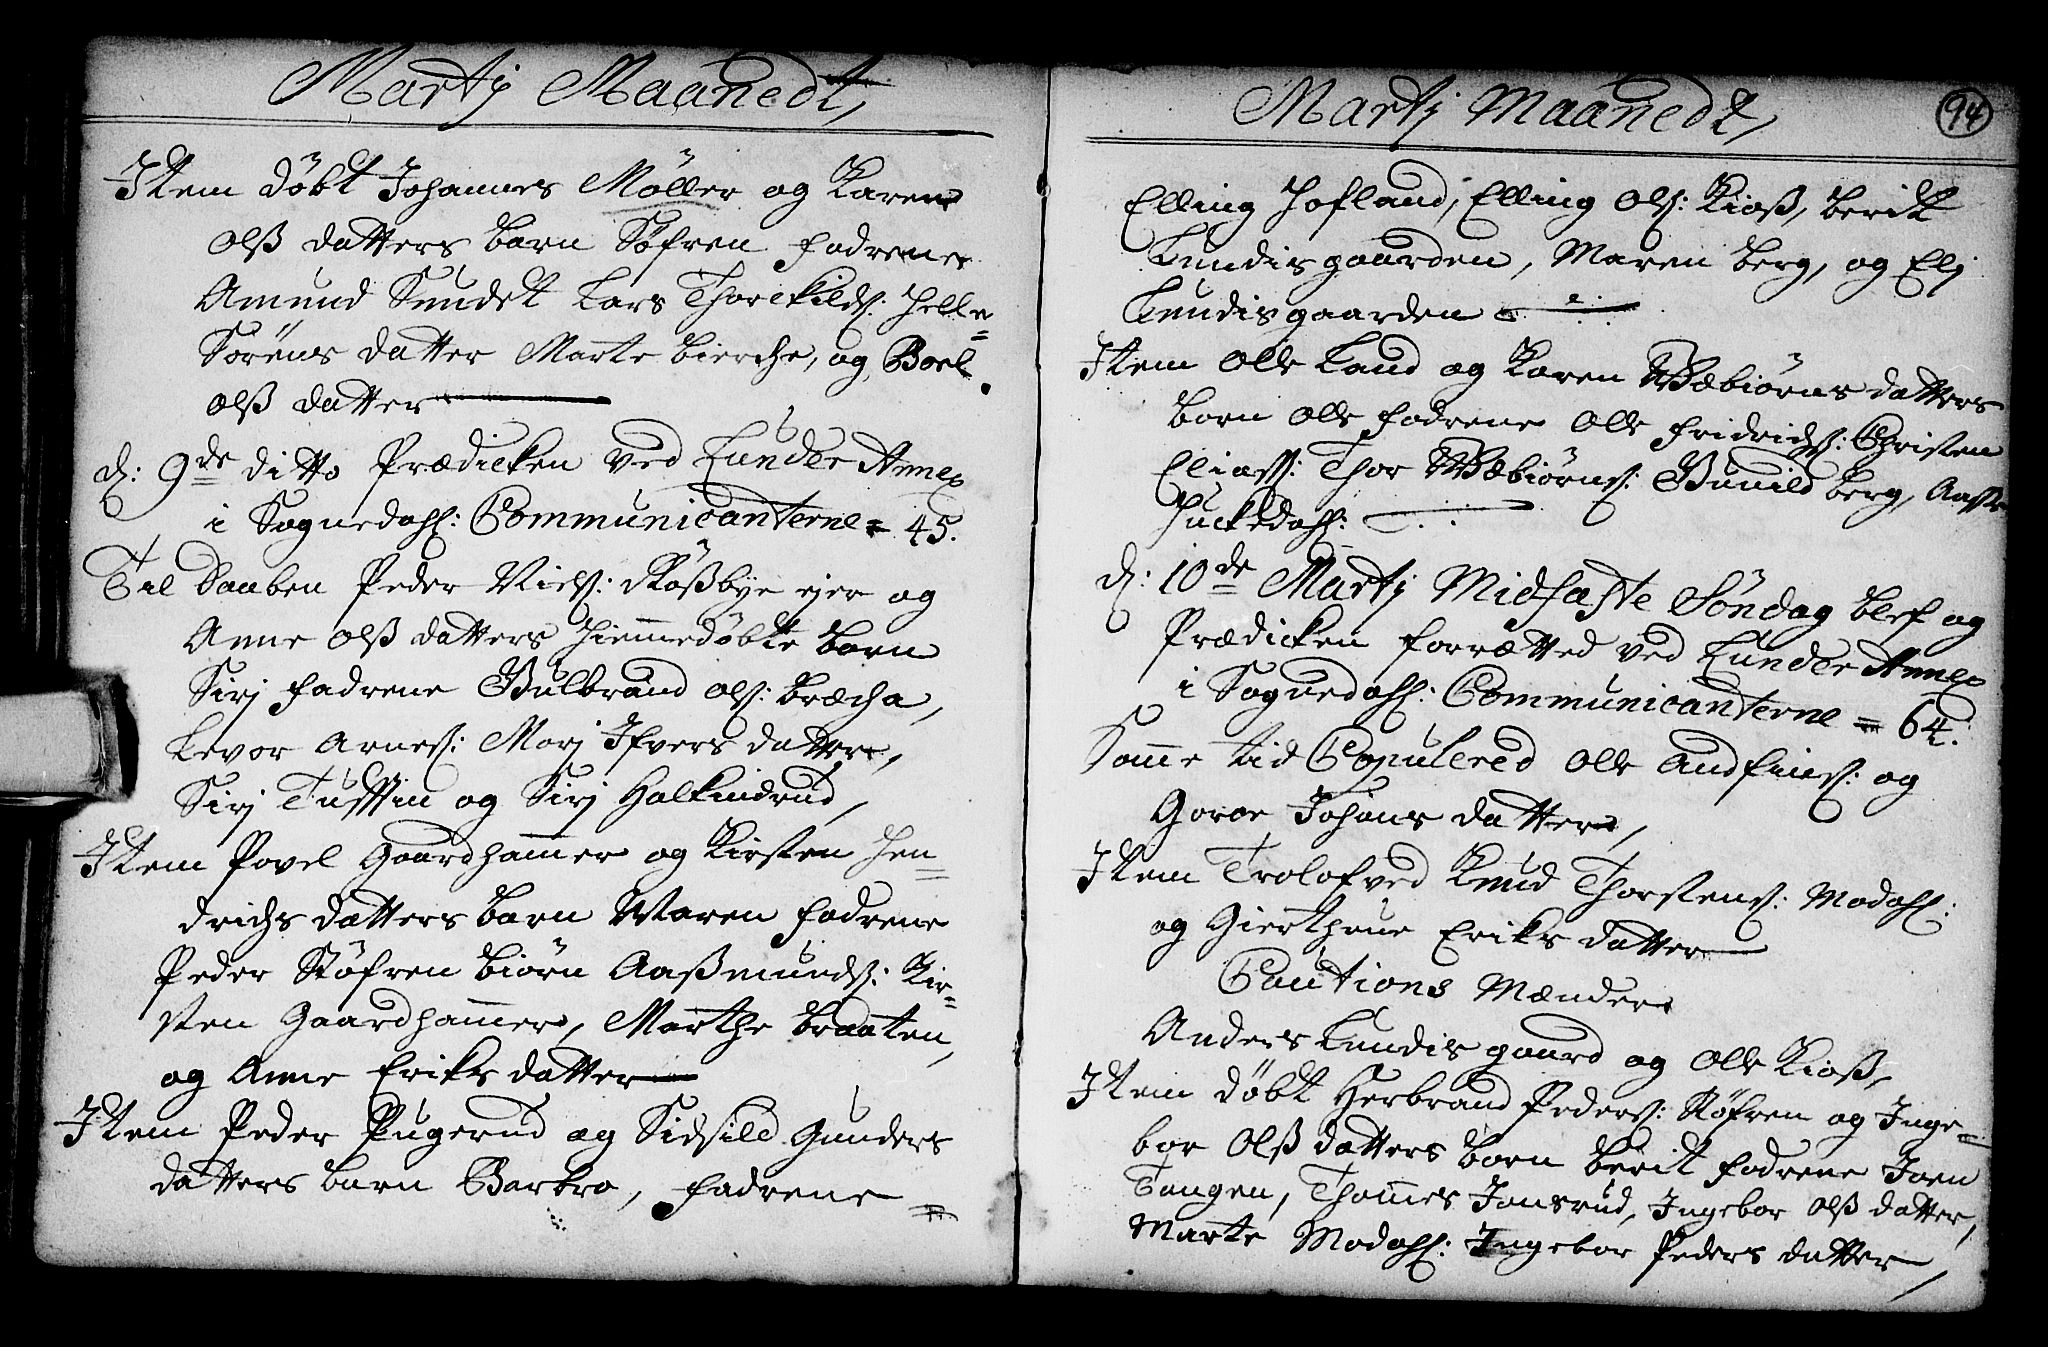 Martj Maanedt,
Item døbt Johannes Møller og Karen
Olß datters barn Søfren fadrene
Amund Sundet Lars Thorckilds: Helle=
Sørens datter Marte bierche, og Boel
Olß datter
d: 9de ditto Prædicken ved Lunder Annex
i Sognedahl: Communicanterne = 45.
Til Daaben Peder Niels: Røßbye ejer og
Anne Olß datters hiemmedøbte barn
Sirj fadrene Gulbrand Ols: bræcha,
Levor Arnes: Marj Ifvers datter,
Sirj Tussin og Sirj Halkindrud,
Item Povel Gaardhammer og Kirsten Hen=
drichs datters barn Maren fadrene
Peder Støfren biørn Aaßmunds: Kir=
sten Gaardhammer, Marthe braaten,
og Anne Eriks datter
Item Peder Pugerud og Sidsild Gunders
datters barn Barbro, fadrene =
Martj Maanedt,
94
Elling Hofland, Elling Ols: Kioß, berit
Lundisgaarden, Maren berg, og Elj
Lundisgaarden
Item Olle Land og Karen Wæbiørns datters
barn Olle fadrene Olle fridrichs: Christen
Eliass: Thor Wæbiørns: Gunild berg, Aasse
Juckedahl:
d: 10de Martj Midfaste Søndag blef og
Prædicken forrætted ved Lunder Annex
i Sognedahl: Communicanterne = 64.
Samme tid Copulered Olle Andfins: og
Goroe Johans datter,
Item Trolofved Knud Thorstens: Modahl:
og Gierthrue Eriks datter
Cautions Mænder
Anders Lundisgaard og Olle Kioß,
Item døbt Herbrand Peders: Støfren og Inge=
bor Olß datters barn berit fadrene Joen
Tangen, Thommes Jonsrud, Ingebor Olß datter,
Marte Modahl: Ingebor Peders datter,